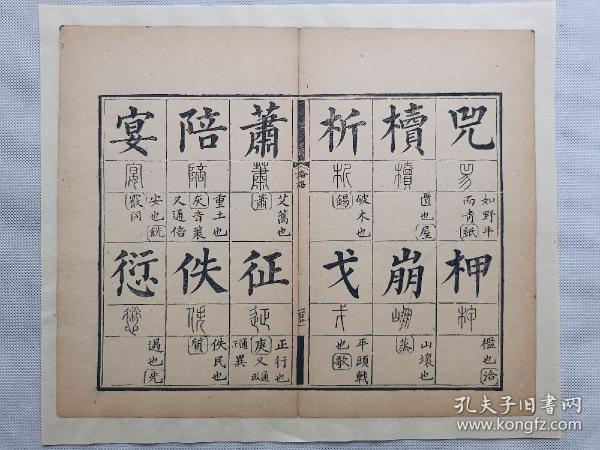 兕
如野牛
而青 紙
柙
檻也 洽
櫝
匵也 屋
崩
山壞也
蒸
析
破木也
錫
戈
平頭戟
也 歌
論語
蕭
艾蒿也
蕭
征
正行也
庚 又通政
正通異
陪
重土也
灰 音裴
又通倍
佚
佚民也
質
宴
安也 銑
霰同
愆
過也 先
孔夫子旧书网
kongfz.com